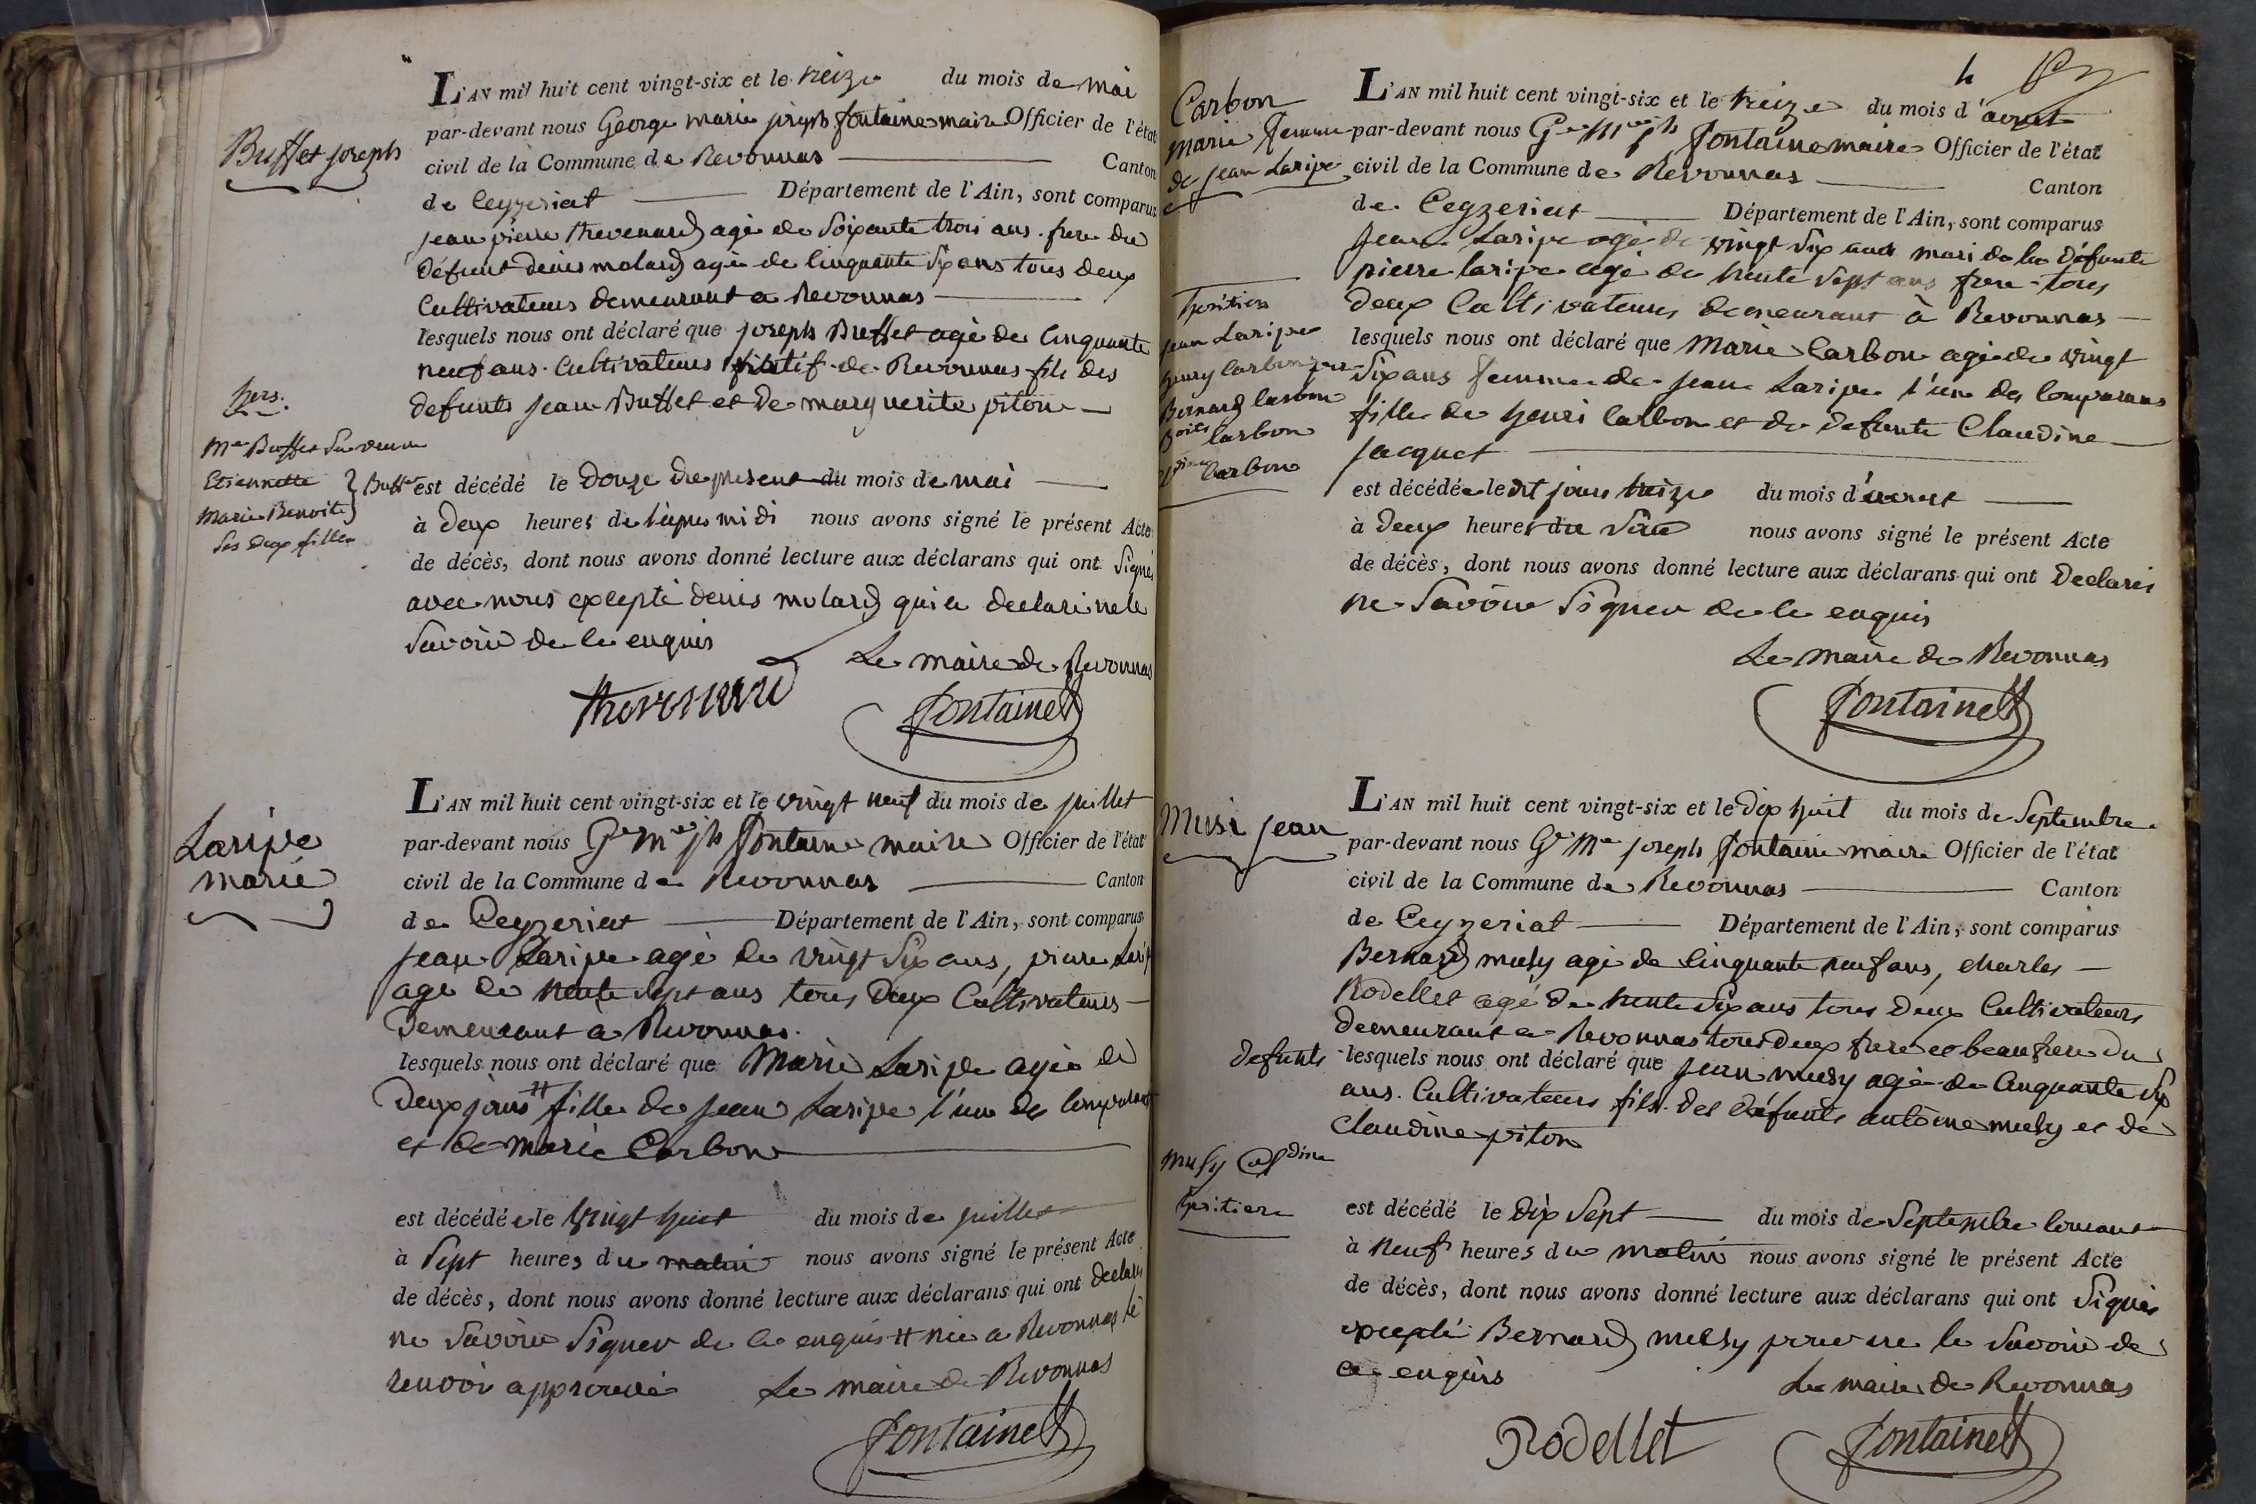 Buffet joseph
L'AN mil huit cent vingt-six et le treize du mois de mai
par-devant nous George marie joseph fontaine maire Officier de l'état
civil de la Commune de Revonnas Canton
de Ceyzeriat Département de l'Ain, sont comparus
jean pierre thevenard agé de soixante trois ans frere du
défunt denis molard agé de cinquante six ans tous deux
Cultivateurs demeurant a Revonnas
lesquels nous ont déclaré que joseph Buffet agé de cinquante
neuf ans Cultivateur natif de Revonnas fils des
defunts jean Buffet et de marguerite piton
hers.
Me Buffet sa veuve
Etiennette } Buffet
Marie Benoite
ses deux filles
est décédé le douze du present du mois de mai
à deux heures de l'apres midi nous avons signé le présent Acte
de décès, dont nous avons donné lecture aux déclarans qui ont signés
avec nous excepté denis molard qui a declaré ne le
savoir de ce enquis
Le maire de Revonnas
thevenard
fontaine
Laripe
marie
L'AN mil huit cent vingt-six et le vingt neuf du mois de juillet
par-devant nous Ge mie jh fontaine maire Officier de l'état
civil de la Commune de Revonnas Canton
de Ceyzeriat Département de l'Ain, sont comparus
jean Laripe agé de vingt six ans, pierre Laripe
agé de trente sept ans tous deux Cultivateurs
demeurant a Revonnas.
lesquels nous ont déclaré que Marie Laripe agée de
deux jours # fille de jean Laripe l'un des comparant
et de marie Carbon
est décédée le vingt huit du mois de juillet
à sept heures du matin nous avons signé le présent Acte
de décès, dont nous avons donné lecture aux déclarans qui ont declaré
ne savoir signer de ce enquis # née a Revonnas le
renvoi approuvé Le maire de Revonnas
fontaine
4
Carbon
marie femme
de jean Laripe
L'AN mil huit cent vingt-six et le treize du mois d'avril
par-devant nous Ge Mie jh fontaine maire Officier de l'état
civil de la Commune de Revonnas Canton
de Ceyzeriat Département de l'Ain, sont comparus
jean Laripe agé de vingt six ans mari de la défunte
pierre laripe agé de trente sept ans frere tous
deux Cultivateurs demeurant à Revonnas
lesquels nous ont déclaré que Marie Carbon agée de vingt
six ans femme de jean Laripe l'un des comparans
fille de henri Carbon et de defunte Claudine
jacquet
heritiers
jean Laripe
henry Carbon pere
Bernard Carbon
Carbon
Carbon
est décédée le dit jour treize du mois d'avril
à deux heures du soir nous avons signé le présent Acte
de décès, dont nous avons donné lecture aux déclarans qui ont declarés
ne savoir signer de ce enquis
Le maire de Revonnas
fontaine
Musi jean
L'AN mil huit cent vingt-six et le dix huit du mois de septembre
par-devant nous Ge Mie joseph fontaine maire Officier de l'état
civil de la Commune de Revonnas Canton
de Ceyzeriat Département de l'Ain, sont comparus
Bernard musy agé de cinquante neuf ans, charles
Rodellet agé de trente six ans tous deux Cultivateurs
demeurant a Revonnas tous deux frere et beau frere du
defunts lesquels nous ont déclaré que jean musy agé de cinquante six
ans. Cultivateur fils des défunts antoine musy et de
claudine piton
musy Cldine
heritiere
est décédé le dix sept du mois de septembre courant
à neuf heures du matin nous avons signé le présent Acte
de décès, dont nous avons donné lecture aux déclarans qui ont signés
excepté Bernard musy pour ne le savoir de
ce enquis
Le maire de Revonnas
Rodellet
fontaine